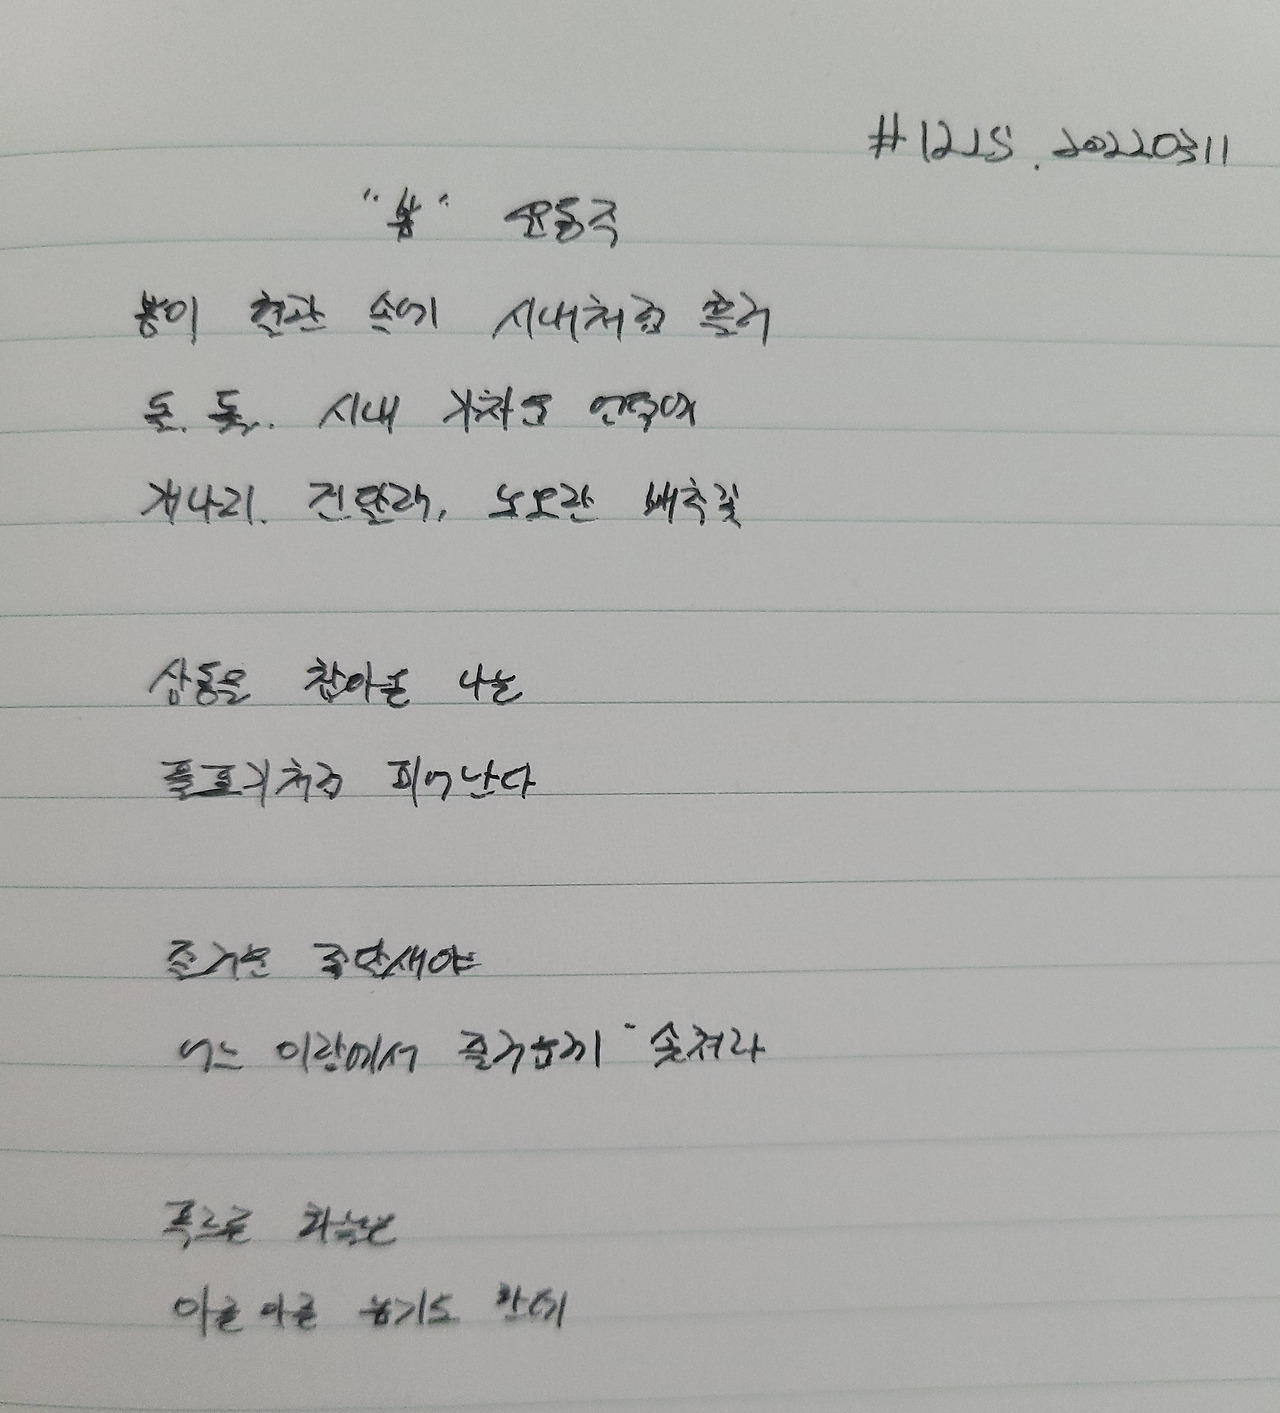 #1225. 20220311
"봄" 윤동주
봄이 혈관 속에 시내처럼 흘러
돌. 돌. 시내 가차운 언덕에
개나리. 진달래, 노오란 배추꽃
삼동을 참아온 나는
풀포기처럼 피어난다
즐거운 종달새야
너는 이랑에서 즐거웁게 솟쳐라
푸르른 하늘은
아른아른 높기도 한데